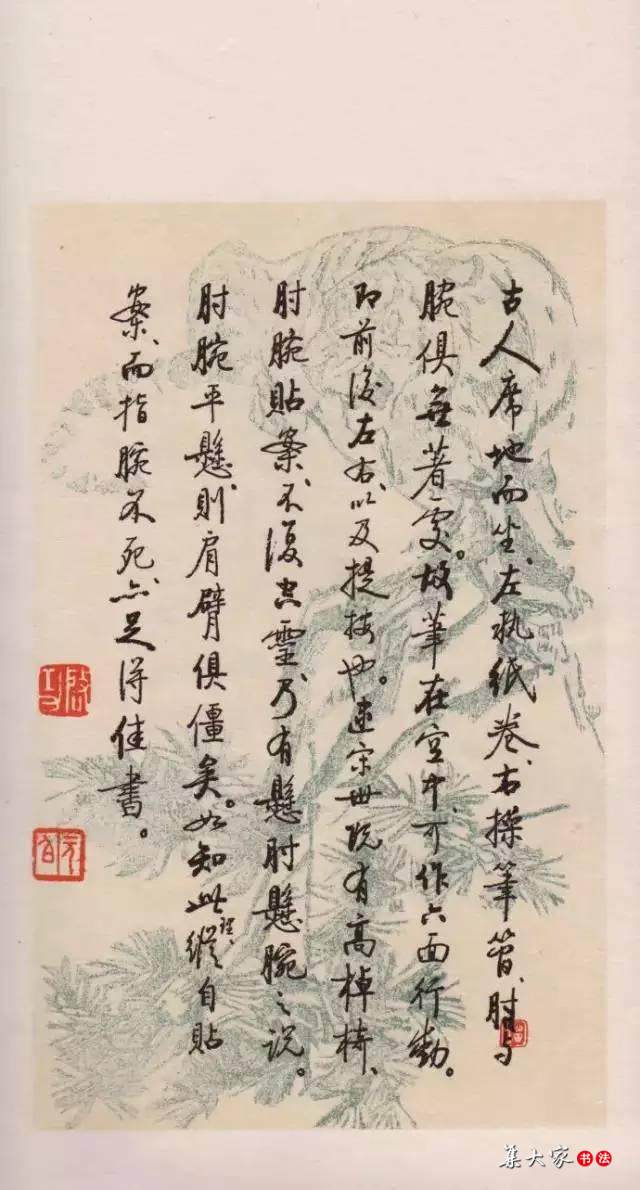 古人席地而坐、左執紙卷、右操筆管、肘与
腕俱無著處。故筆在空中、可作六面行動。
即前後左右、以及提按也。逮宋世既有高棹椅、
肘腕貼案、不復空靈、乃有懸肘懸腕之說。
肘腕平懸、則肩臂俱僵矣。如知此理、縱自貼
案、而指腕不死、亦足得佳書。
啟功
元白
集大家书法